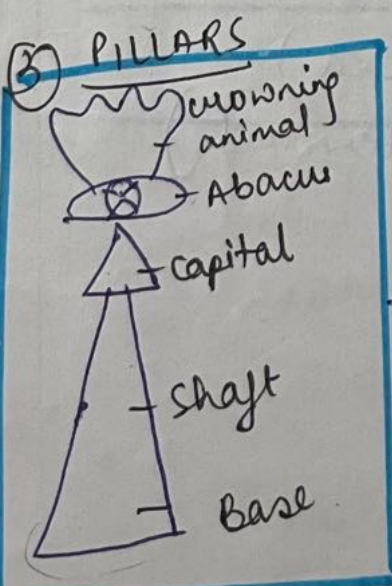 3 PILLARS
crowning
animal
Abacus
Capital
Shaft
Base